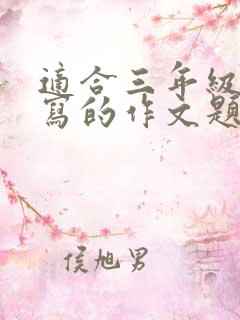 適合三年級
寫的作文題
侯旭男